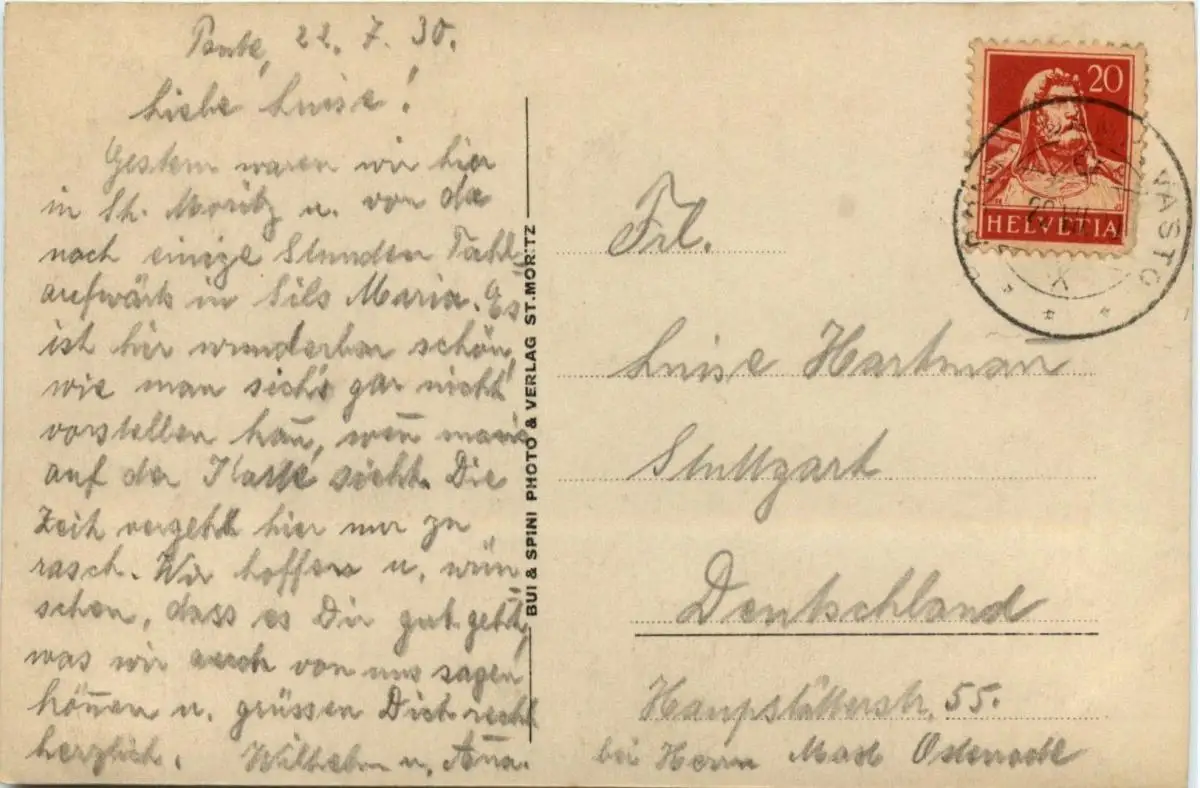 Ponte, 22. 7. 30.
Liebe Luise!
Gestern waren wir hier
in St. Moritz u. von da
noch einige Stunden Tahl
aufwärts in Sils Maria. Es
ist hier wunderbar schön,
wie man sich's gar nicht
vorstellen kan̄, wen̄ mans
auf der Karte sieht. Die
Zeit vergeht hier nur zu
rasch. Wir hoffen u. wün
schen, dass es Dir gut geht,
was wir auch von uns sagen
kön̄en u. grüssen Dich recht
herzlich. Wilhelm u. An̄a.
BUI & SPINI PHOTO & VERLAG ST. MORITZ
20
HELVETIA
VASTO
Frl.
Luise Hartman̄
Stuttgart
Deutschland
Haupstätterstr. 55.
bei Herrn